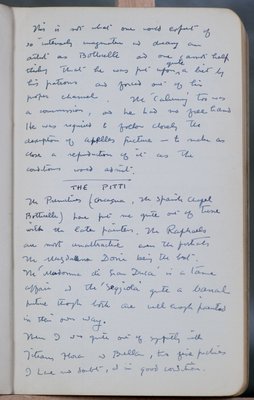 This is not what one would expect of
so intensely imaginative and dreamy an
artist as Botticelli and one cannot help
thinking that he was put upon quite a bit by
his patrons and forced out of his
proper channel. The Calumny too was
a commission, and he had no free hand
He was required to follow closely the
description of Apelles picture – to make as
close a reproduction of it as the
conditions would admit.
THE PITTI
The Primitives (Orcagna, the Spanish Chapel
Botticelli) have put me quite out of tune
with the later painters. The Raphaels
are most unattractive even the portraits
the Magdalena Doria being the best.
The 'Madonna di San Duca' is a lame
affair & the 'Seggiola' quite a banal
picture though both are well enough painted
in their own way.
Then I was quite out of sympathy with
Titians Flora & Bella, two fine pictures
I have no doubt, & in good condition.